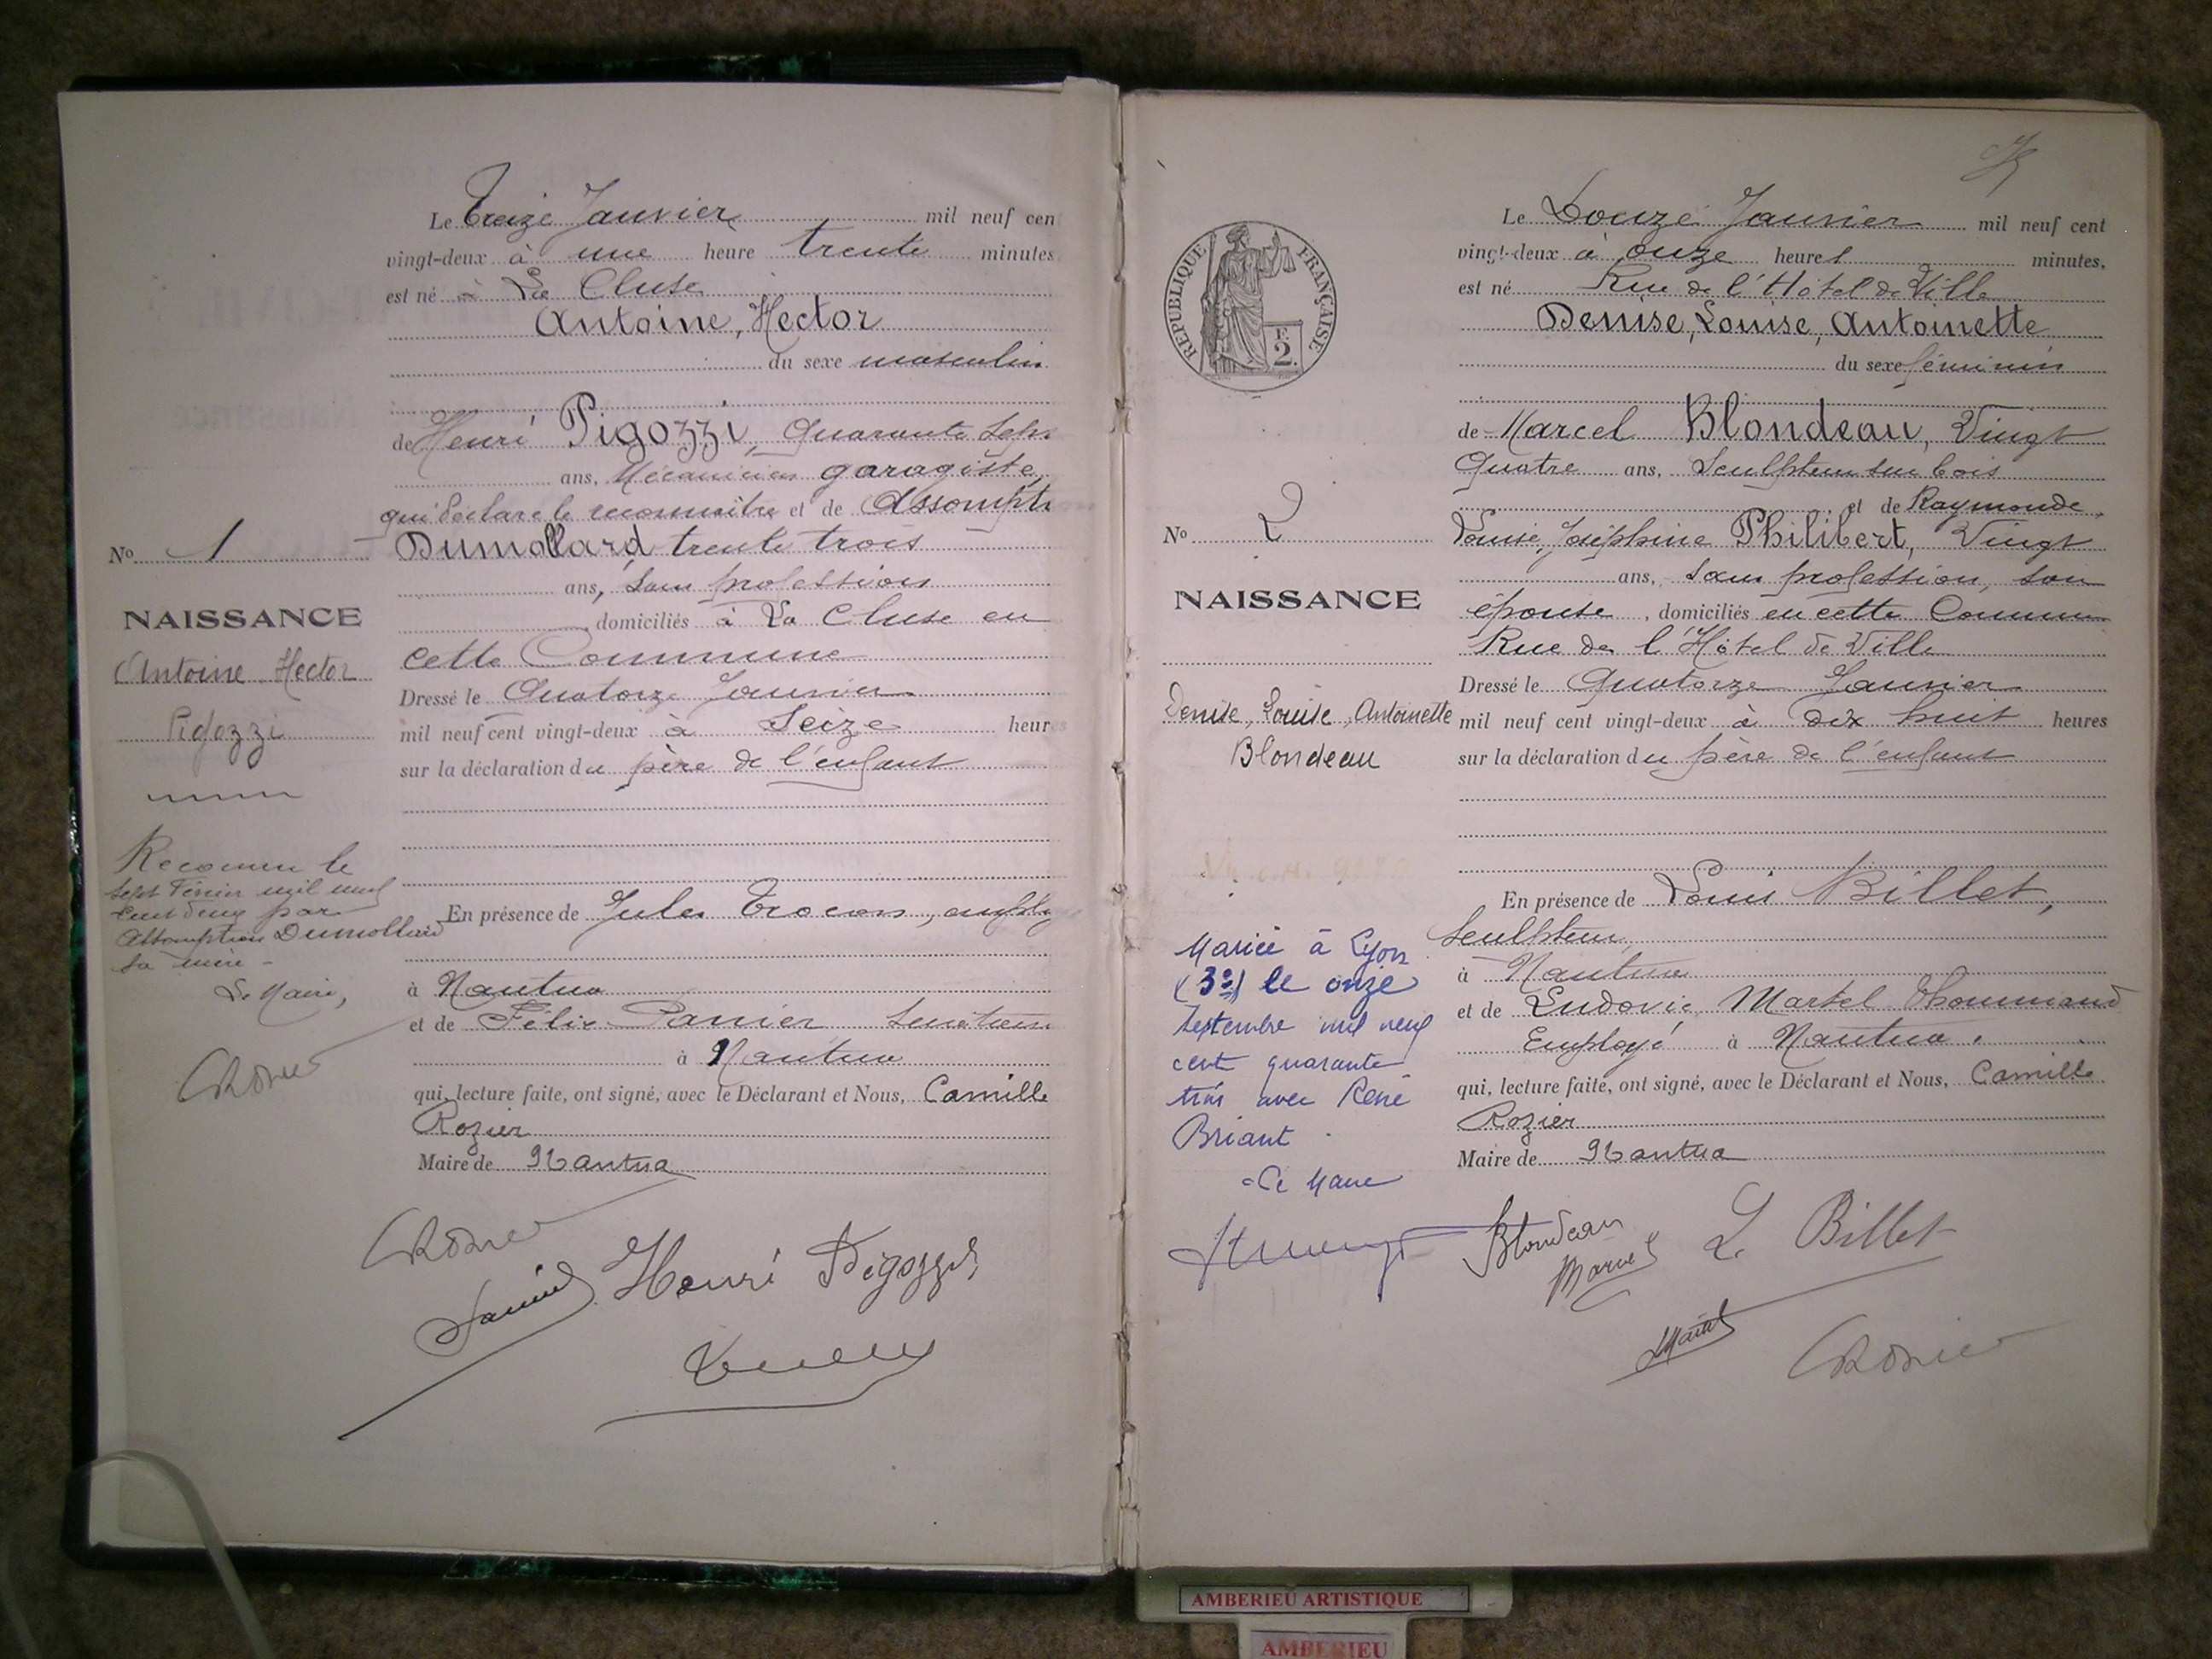 Le Treize Janvier mil neuf cen
vingt-deux à une heure trente minutes
est né à La Cluse
Antoine, Hector
du sexe masculin
de Henri Pigozzi, Quarante Sept
ans, Mécanicien garagiste,
qui déclare le reconnaître et de Assompti
Dumollard, trente trois
ans, sans profession
domiciliés à La Cluse en
cette Commune
Dressé le Quatorze Janvier
mil neuf cent vingt-deux à Seize heures
sur la déclaration du père de l'enfant
En présence de Jules employ
à Nantua
et de Félix Panier
à Nantua
qui, lecture faite, ont signé, avec le Déclarant et Nous, Camille
Rozier
Maire de Nantua
Henri Pigozzi
No 1
NAISSANCE
Antoine Hector
Pigozzi
Reconnu le
sept Février mil neuf
cent deux par
Assomption Dumollard
sa mère -
Le Maire,
Le Douze Janvier mil neuf cent
vingt-deux à onze heures minutes,
est né Rue de l'Hôtel de Ville
Denise, Louise, Antoinette
du sexe féminin
de Marcel Blondeau, Vingt
Quatre ans, Sculpteur sur bois
et de Raymonde,
Louise, Joséphine Philibert, Vingt
ans, sans profession, son
épouse, domiciliés en cette Commune
Rue de l'Hôtel de Ville
Dressé le Quatorze Janvier
mil neuf cent vingt-deux à dix huit heures
sur la déclaration du père de l'enfant
En présence de Louis Billet,
Sculpteur
à Nantua
et de Ludovic Martel
Employé à Nantua.
qui, lecture faite, ont signé, avec le Déclarant et Nous, Camille
Rozier
Maire de Nantua
Blondeau
Marcel
L. Billet
REPUBLIQUE FRANÇAISE
F. 2.
No 2
NAISSANCE
Denise, Louise, Antoinette
Blondeau
Mariée à Lyon
(3e) le onze
Septembre mil neuf
cent quarante
trois avec René
Briant.
Le Maire
AMBERIEU ARTISTIQUE
AMBERIEU